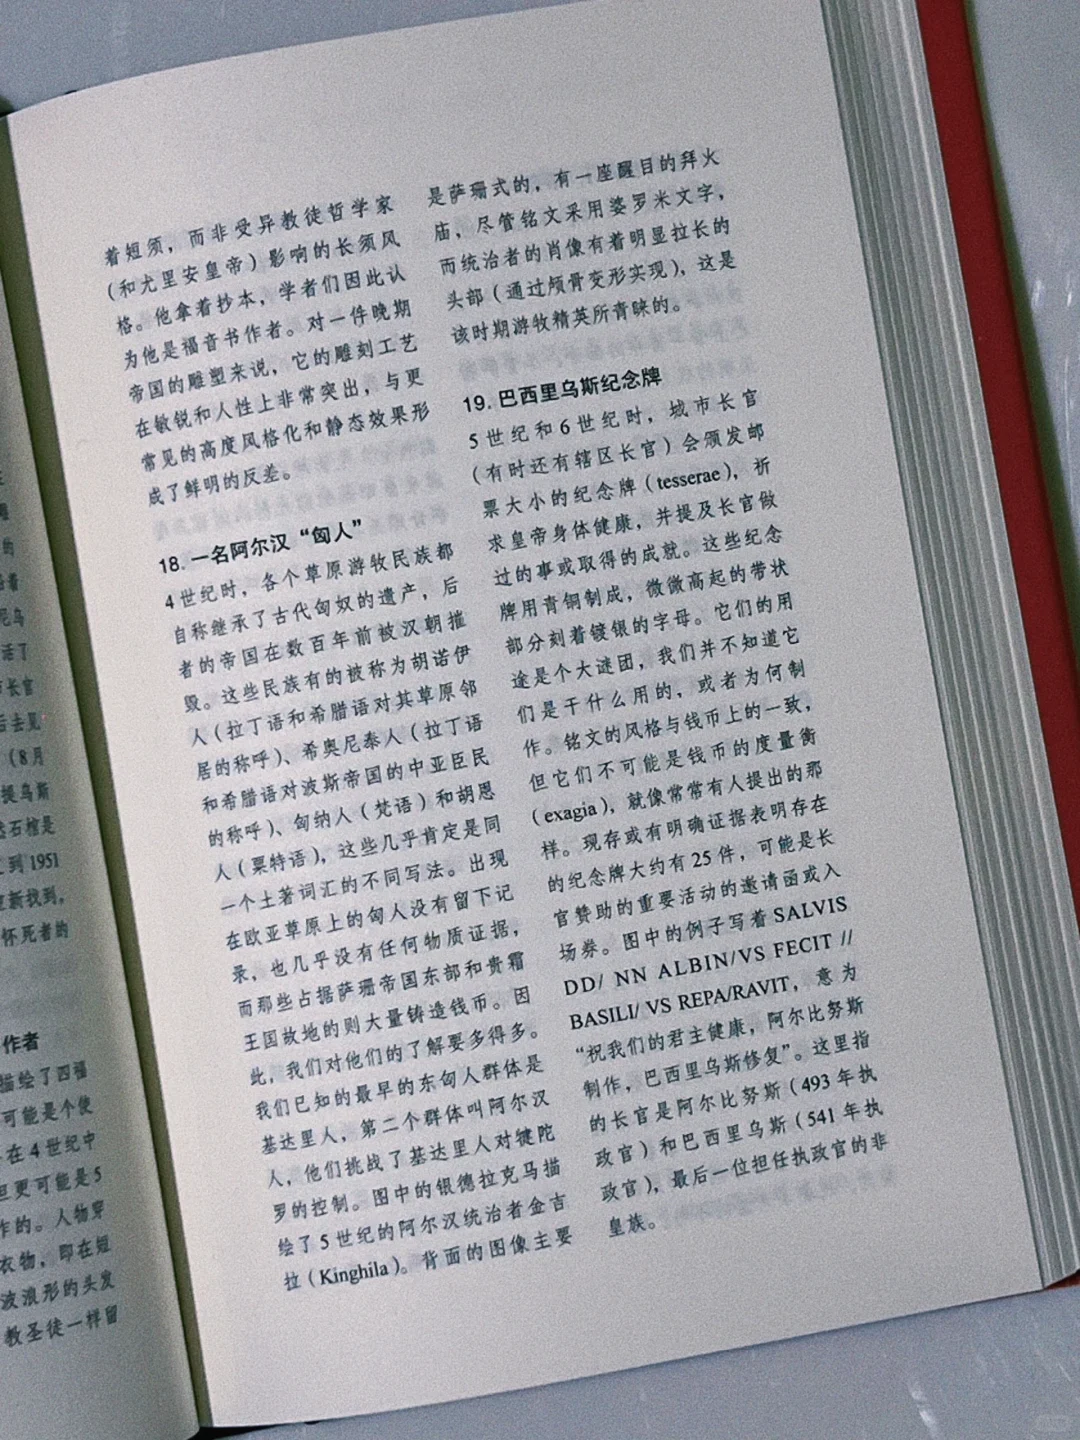 怀死者的
作者
描绘了四福
可能是个使
在4世纪中
但更可能是5
作的。人物穿
衣物，即在短
波浪形的头发
教圣徒一样留
着短须，而非受异教徒哲学家
（和尤里安皇帝）影响的长须风
格。他拿着抄本，学者们因此认
为他是福音书作者。对一件晚期
帝国的雕塑来说，它的雕刻工艺
在敏锐和人性上非常突出，与更
常见的高度风格化和静态效果形
成了鲜明的反差。
18. 一名阿尔汉“匈人”
4世纪时，各个草原游牧民族都
自称继承了古代匈奴的遗产，后
者的帝国在数百年前被汉朝摧
毁。这些民族有的被称为胡诺伊
人（拉丁语和希腊语对其草原邻
居的称呼）、希奥尼泰人（拉丁语
和希腊语对波斯帝国的中亚臣民
的称呼）、匈纳人（梵语）和胡恩
人（粟特语），这些几乎肯定是同
一个土著词汇的不同写法。出现
在欧亚草原上的匈人没有留下记
录，也几乎没有任何物质证据，
而那些占据萨珊帝国东部和贵霜
王国故地的则大量铸造钱币。因
此，我们对他们的了解要多得多。
我们已知的最早的东匈人群体是
基达里人，第二个群体叫阿尔汉
人，他们挑战了基达里人对犍陀
罗的控制。图中的银德拉克马描
绘了5世纪的阿尔汉统治者金吉
拉（Kinghila）。背面的图像主要
是萨珊式的，有一座醒目的拜火
庙，尽管铭文采用婆罗米文字，
而统治者的肖像有着明显拉长的
头部（通过颅骨变形实现），这是
该时期游牧精英所青睐的。
19. 巴西里乌斯纪念牌
5世纪和6世纪时，城市长官
（有时还有辖区长官）会颁发邮
票大小的纪念牌（tesserae），祈
求皇帝身体健康，并提及长官做
过的事或取得的成就。这些纪念
牌用青铜制成，微微高起的带状
部分刻着镀银的字母。它们的用
途是个大谜团，我们并不知道它
们是干什么用的，或者为何制
作。铭文的风格与钱币上的一致，
但它们不可能是钱币的度量衡
（exagia），就像常常有人提出的那
样。现存或有明确证据表明存在
的纪念牌大约有25件，可能是长
官赞助的重要活动的邀请函或入
场券。图中的例子写着SALVIS
DD/ NN ALBIN/VS FECIT //
BASILI/ VS REPA/RAVIT，意为
“祝我们的君主健康，阿尔比努斯
制作，巴西里乌斯修复”。这里指
的长官是阿尔比努斯（493年执
政官）和巴西里乌斯（541年执
政官），最后一位担任执政官的非
皇族。